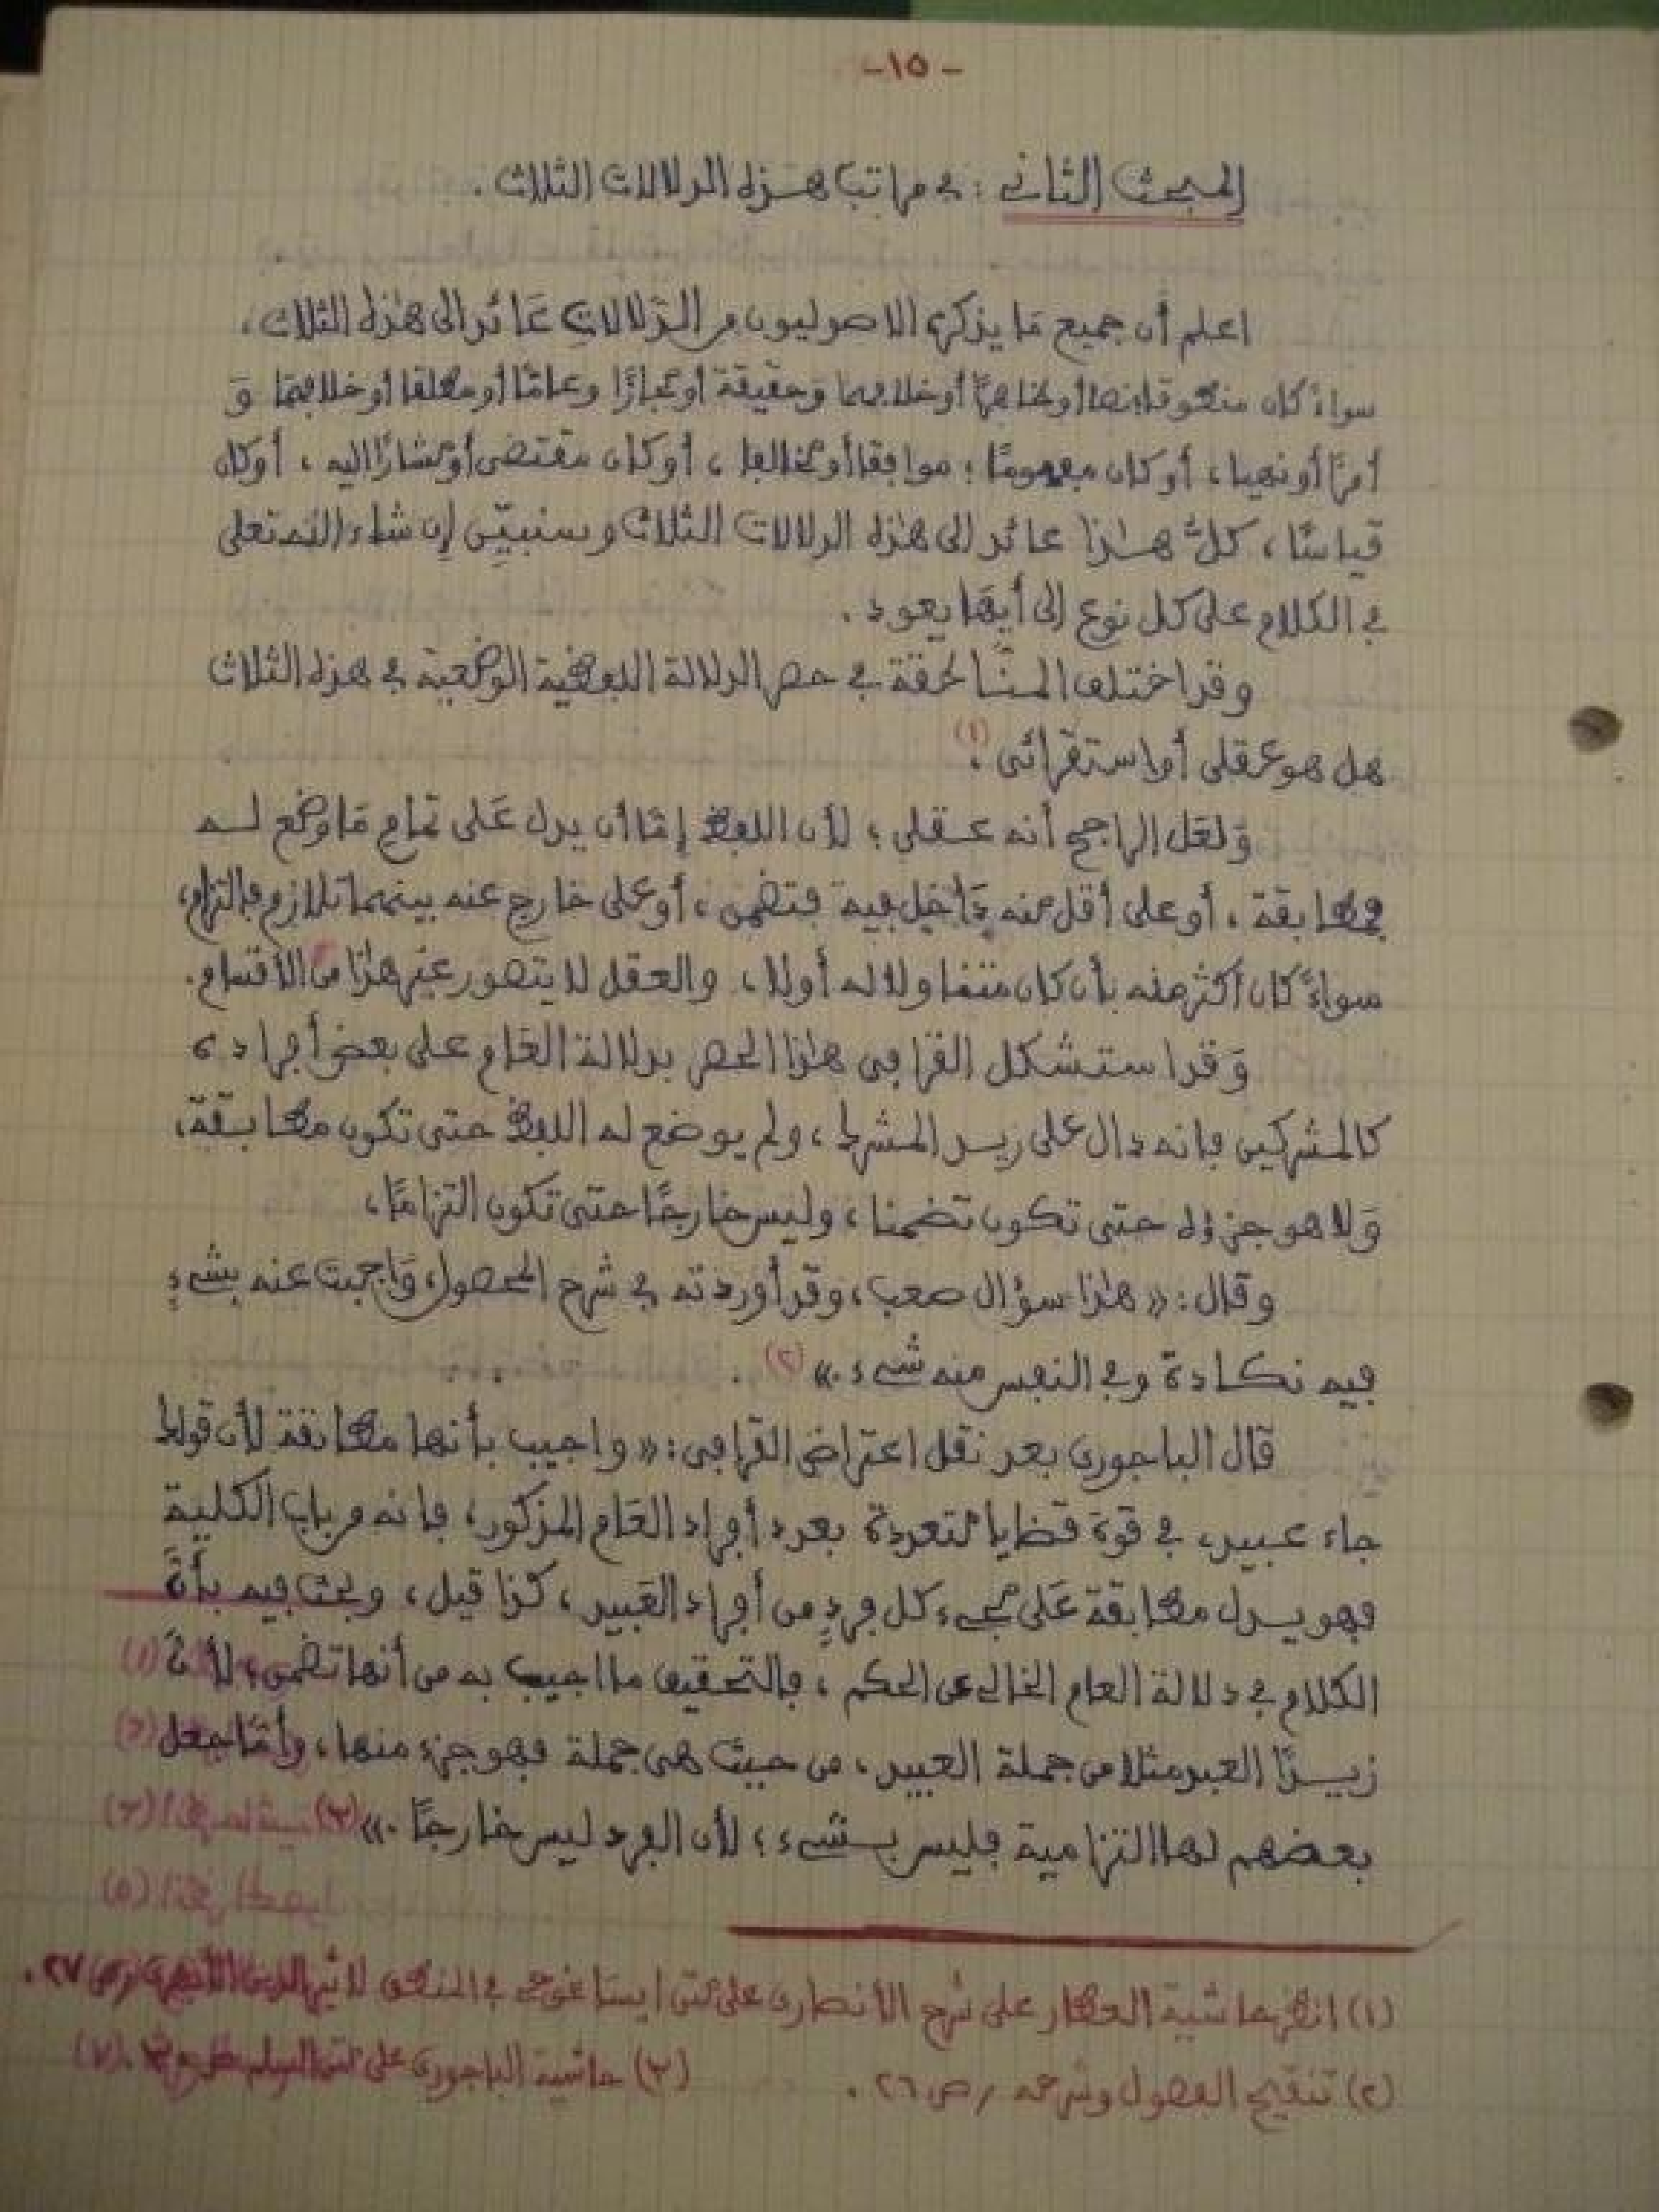 -١٥-
المبحث الثاني : في مراتب هذه الدلالات الثلاث .
اعلم أن جميع مَا يذكره الاصوليون من الدّلالاتِ عَائد إلى هٰذه الثلاث ،
سواءً كان منطوقا نصا أو ظاهرًا أو خلافهما وَحقيقة أو مجازًا وعامًّا أو مطلقا أو خلافهمَا وَ
أمرًا أو نهيا ، أو كان مفهومًا : موافقا أو مخالفا ، أو كان مقتضى أو مشارًا إليه ، أو كان
قياسًا ، كلُّ هـٰذا عائد إلى هٰذه الدلالات الثلاث وسنبيّن إن شاء الله تعلى
في الكلام على كل نوع إلى أيهَا يعود .
وقد اختلف المنَاطقة في حصر الدلالة اللفظية الوضعية في هذه الثلاث
هل هو عقلي أو استقرائي ؟(١)
وَلعَل الراجح أنه عـقلي ؛ لأن اللفظ إمّا أن يدل عَلى تمام مَا وضع لـه
فمطابقة ، أو على أقل منه دَاخل فيه فتضمن ، أو على خارج عنه بينهما تلازم فالتزام ،
سواءً كان أكثر منه بأن كان متناولا له أو لا ، والعقل لا يتصور غير هٰذا من الأقسام .
وَقد استشكل القرافي هٰذا الحصر بدلالة العَام على بعض أفراده
كالمشركين فإنه دال على زيد المشرك ، ولم يوضع له اللفظ حتى تكون مطابقة ،
وَلا هو جزؤه حتى تكون تضمنا ، وليس خارجًا حتى تكون التزامًا ،
وقال : « هٰذا سؤال صعب ، وقد أوردته في شرح المحصول ، وَأجبت عنه بشيءٍ
فيه نكـادة وفي النفس منه شيء . » (٢) .
قال الباجوري بعد نقل اعتراض القرافي : « واجيب بأنها مطابقة لأن قولك
جاء عبيدي في قوة قضايا متعددة بعدد أفراد العَام المذكور ، فإنه من باب الكلية
فهو يدل مطابقة عَلى مجيء كل فردٍ من أفراد العَبيد ، كذا قيل ، وبحث فيه بأنَّ
الكلام في دلالة العام الخالي عن الحكم ، فالتحقيق ما اجيب به من أنها تضمن ؛ لأنَّ
زيـدًا العبد مثلا من جملة العبيد ، من حيث هي جملة فهو جزء منها ، وأمّا جعل
بعضهم لها التزامية فليس بـشيء ؛ لأن الفرد ليس خارجًا . » (٣)
(١) انظر حاشية العطار على شرح الأنصاري على متن إيساغوجي في المنطق لأثير الدين الأبهري / ص ٢٧ .
(٢) تنقيح الفصول وشرحه / ص ٢٦ .
(٣) حاشية الباجوري على متن السلم